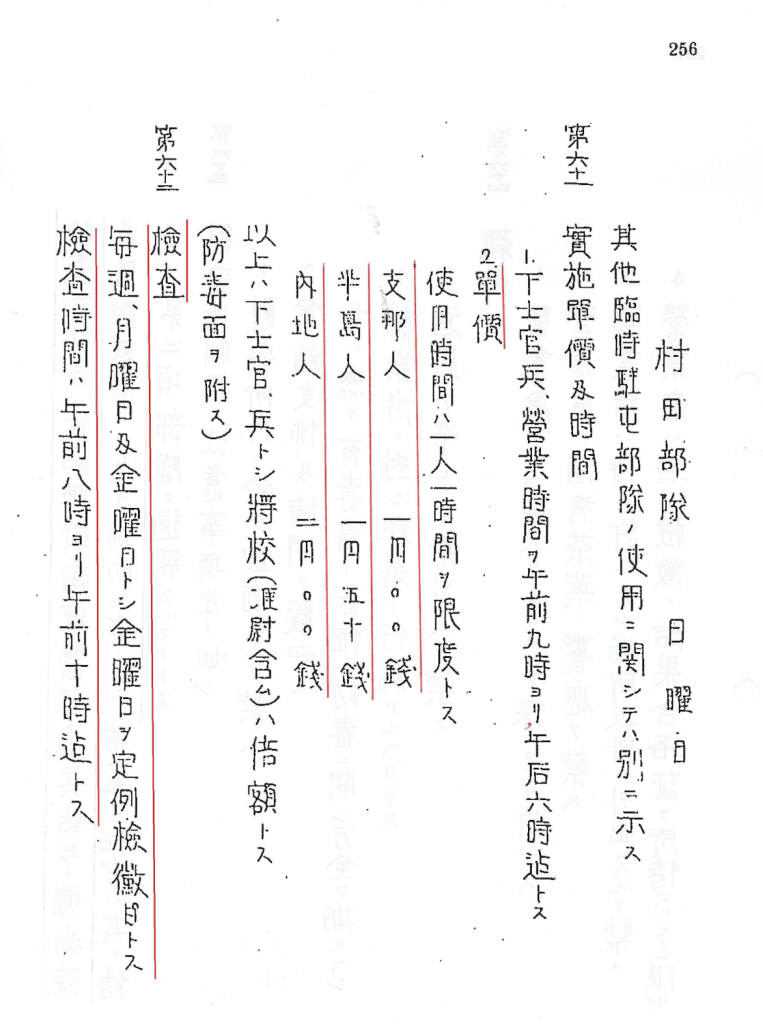 256
村田部隊 日曜日
其他臨時駐屯部隊ノ使用ニ関シテハ別ニ示ス
第六十一 實施單價及時間
1.下士官兵、營業時間ヲ午前九時ヨリ午后六時迠トス
2.單價
使用時間ハ一人一時間ヲ限度トス
支那人 一円〇〇錢
半島人 一円五十錢
內地人 二円〇〇錢
以上ハ下士官、兵トシ將校(准尉含ム)ハ倍額トス
(防毒面ヲ附ス)
第六十二 檢査
每週、月曜日及金曜日トシ金曜日ヲ定例檢黴日トス
檢査時間ハ午前八時ヨリ午前十時迠トス